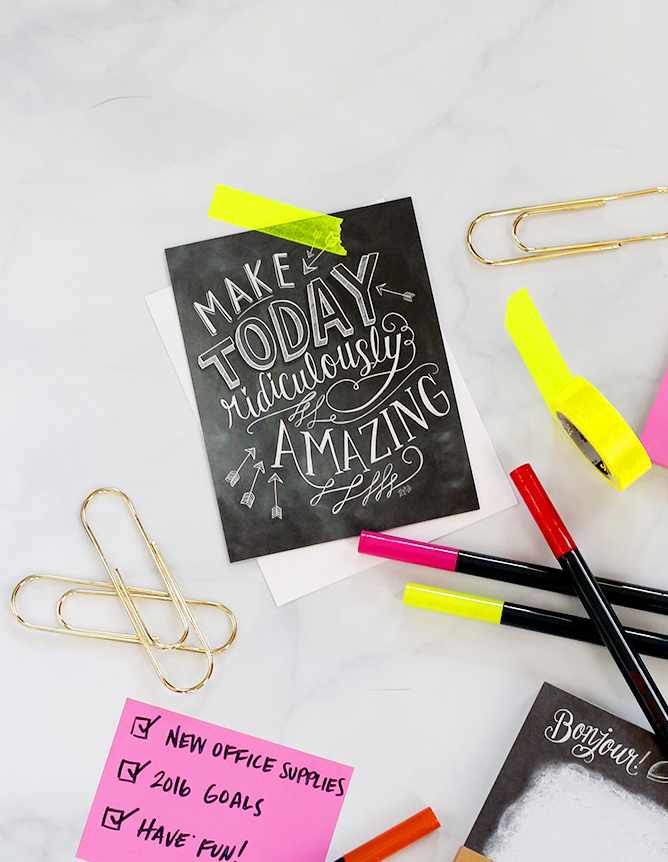 MAKE
TODAY
ridiculously
AMAZING
NEW OFFICE SUPPLIES
2016 GOALS
HAVE FUN!
Bonjour!